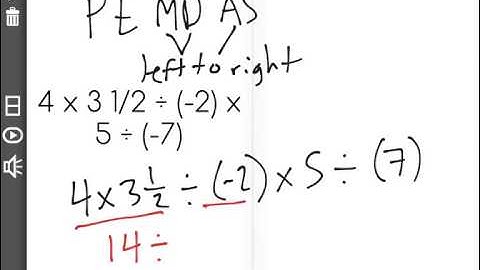 PE MD AS
left to right
4 x 3 1/2 ÷ (-2) x
5 ÷ (-7)
4 x 3 1/2 ÷ (-2) x 5 ÷ (7)
14 ÷